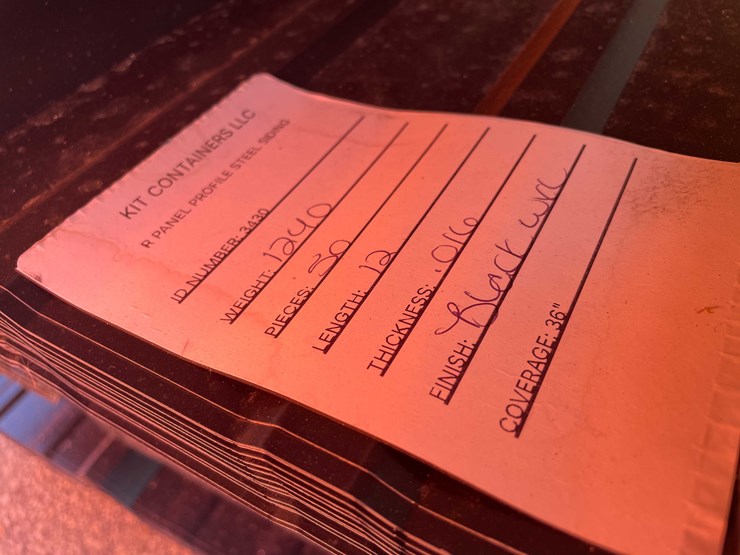 KIT CONTAINERS LLC
R PANEL PROFILE STEEL SIDING
ID NUMBER: 3430
WEIGHT: 1240
PIECES: 50
LENGTH: 12
THICKNESS: .016
FINISH: Black
COVERAGE: 36"